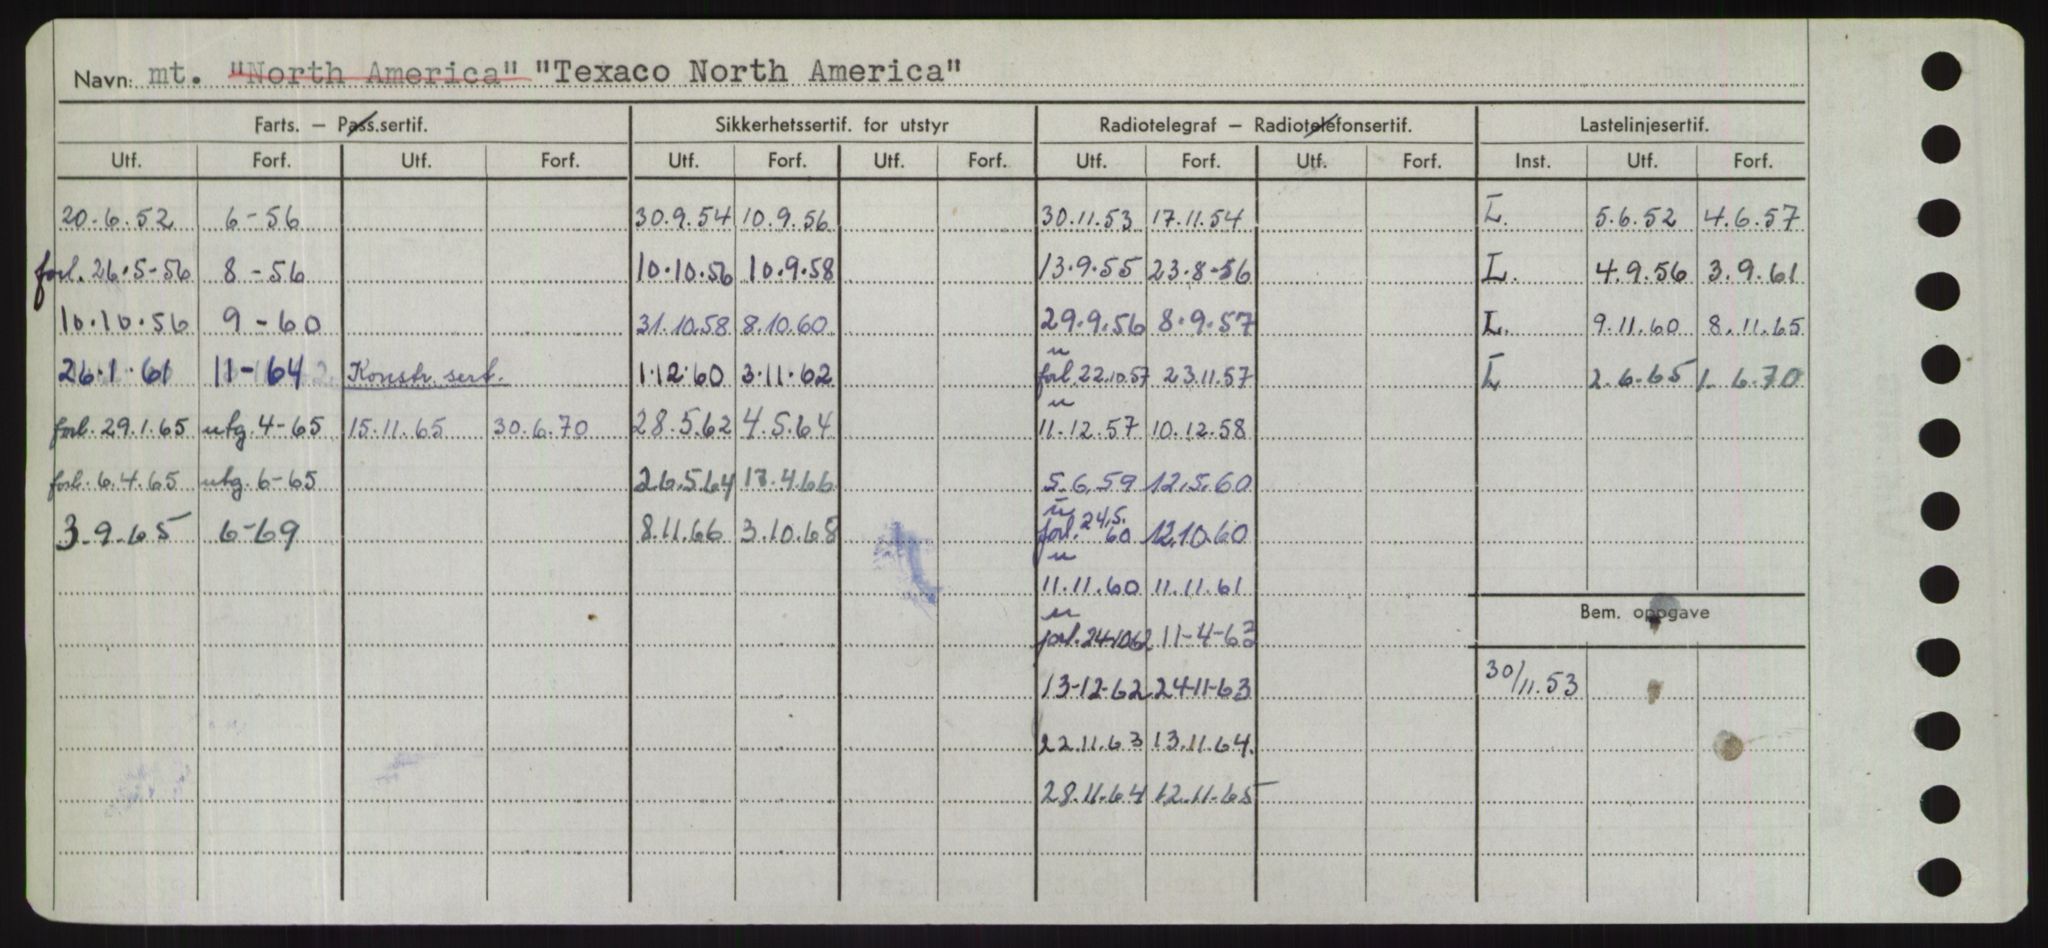 Navn: mt. "North America" "Texaco North America"
Farts. — Pass.sertif. Sikkerhetssertif. for utstyr Radiotelegraf — Radiotelefonsertif. Lastelinjesertif.
Utf. Forf. Utf. Forf. Utf. Forf. Utf. Forf. Utf. Forf. Utf. Forf. Inst. Utf. Forf.
20.6.52 6-56 30.9.54 10.9.56 30.11.53 17.11.54 L. 5.6.52 4.6.57
forl. 26.5-56 8-56 10.10.56 10.9.58 13.9.55 23.8-56 L. 4.9.56 3.9.61
10.10.56 9-60 31.10.58 8.10.60 29.9.56 8.9.57 L. 9.11.60 8.11.65
26.1.61 11-64 Konstr. sert. 1.12.60 3.11.62 forl. 22.10.57 23.11.57 L 2.6.65 1.6.70
forl. 29.1.65 utg. 4-65 15.11.65 30.6.70 28.5.62 4.5.64 11.12.57 10.12.58
forl. 6.4.65 utg. 6-65 26.5.64 13.4.66 5.6.59 12.5.60
3.9.65 6-69 8.11.66 3.10.68 forl. 24.5.60 12.10.60
11.11.60 11.11.61
Bem. oppgave
forl. 24.10.62 11-4-63
30/11.53
13-12-62 24-11-63
22.11.63 13.11.64.
28.11.64 12.11.65